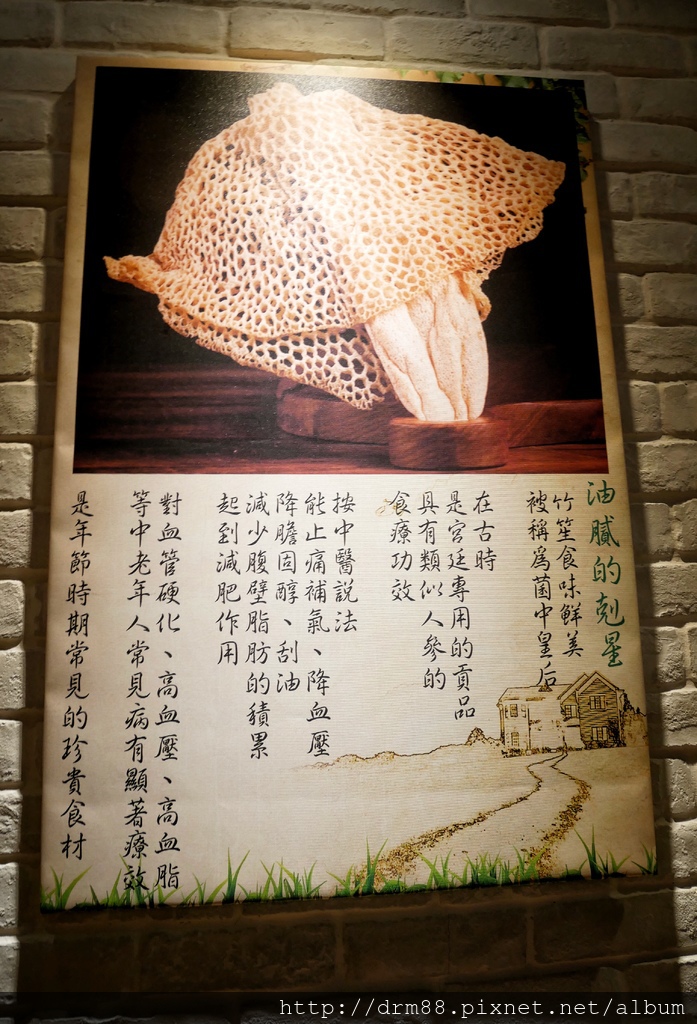 油膩的剋星
竹笙食味鮮美
被稱為菌中皇后
在古時
是宮廷專用的貢品
具有類似人參的
食療功效
按中醫說法
能止痛補氣、降血壓
降膽固醇、刮油
減少腹壁脂肪的積累
起到減肥作用
對血管硬化、高血壓、高血脂
等中老年人常見病有顯著療效
是年節時期常見的珍貴食材
http://drm88.pixnet.net/album